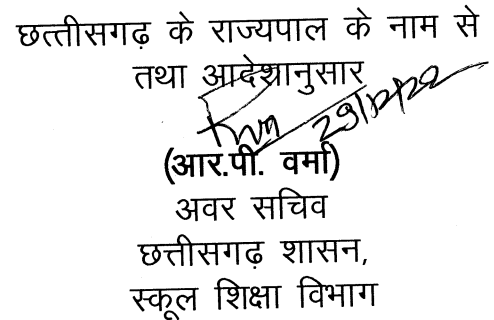 छत्तीसगढ़ के राज्यपाल के नाम से
तथा आदेशानुसार
29/12/22
(आर.पी. वर्मा)
अवर सचिव
छत्तीसगढ़ शासन,
स्कूल शिक्षा विभाग